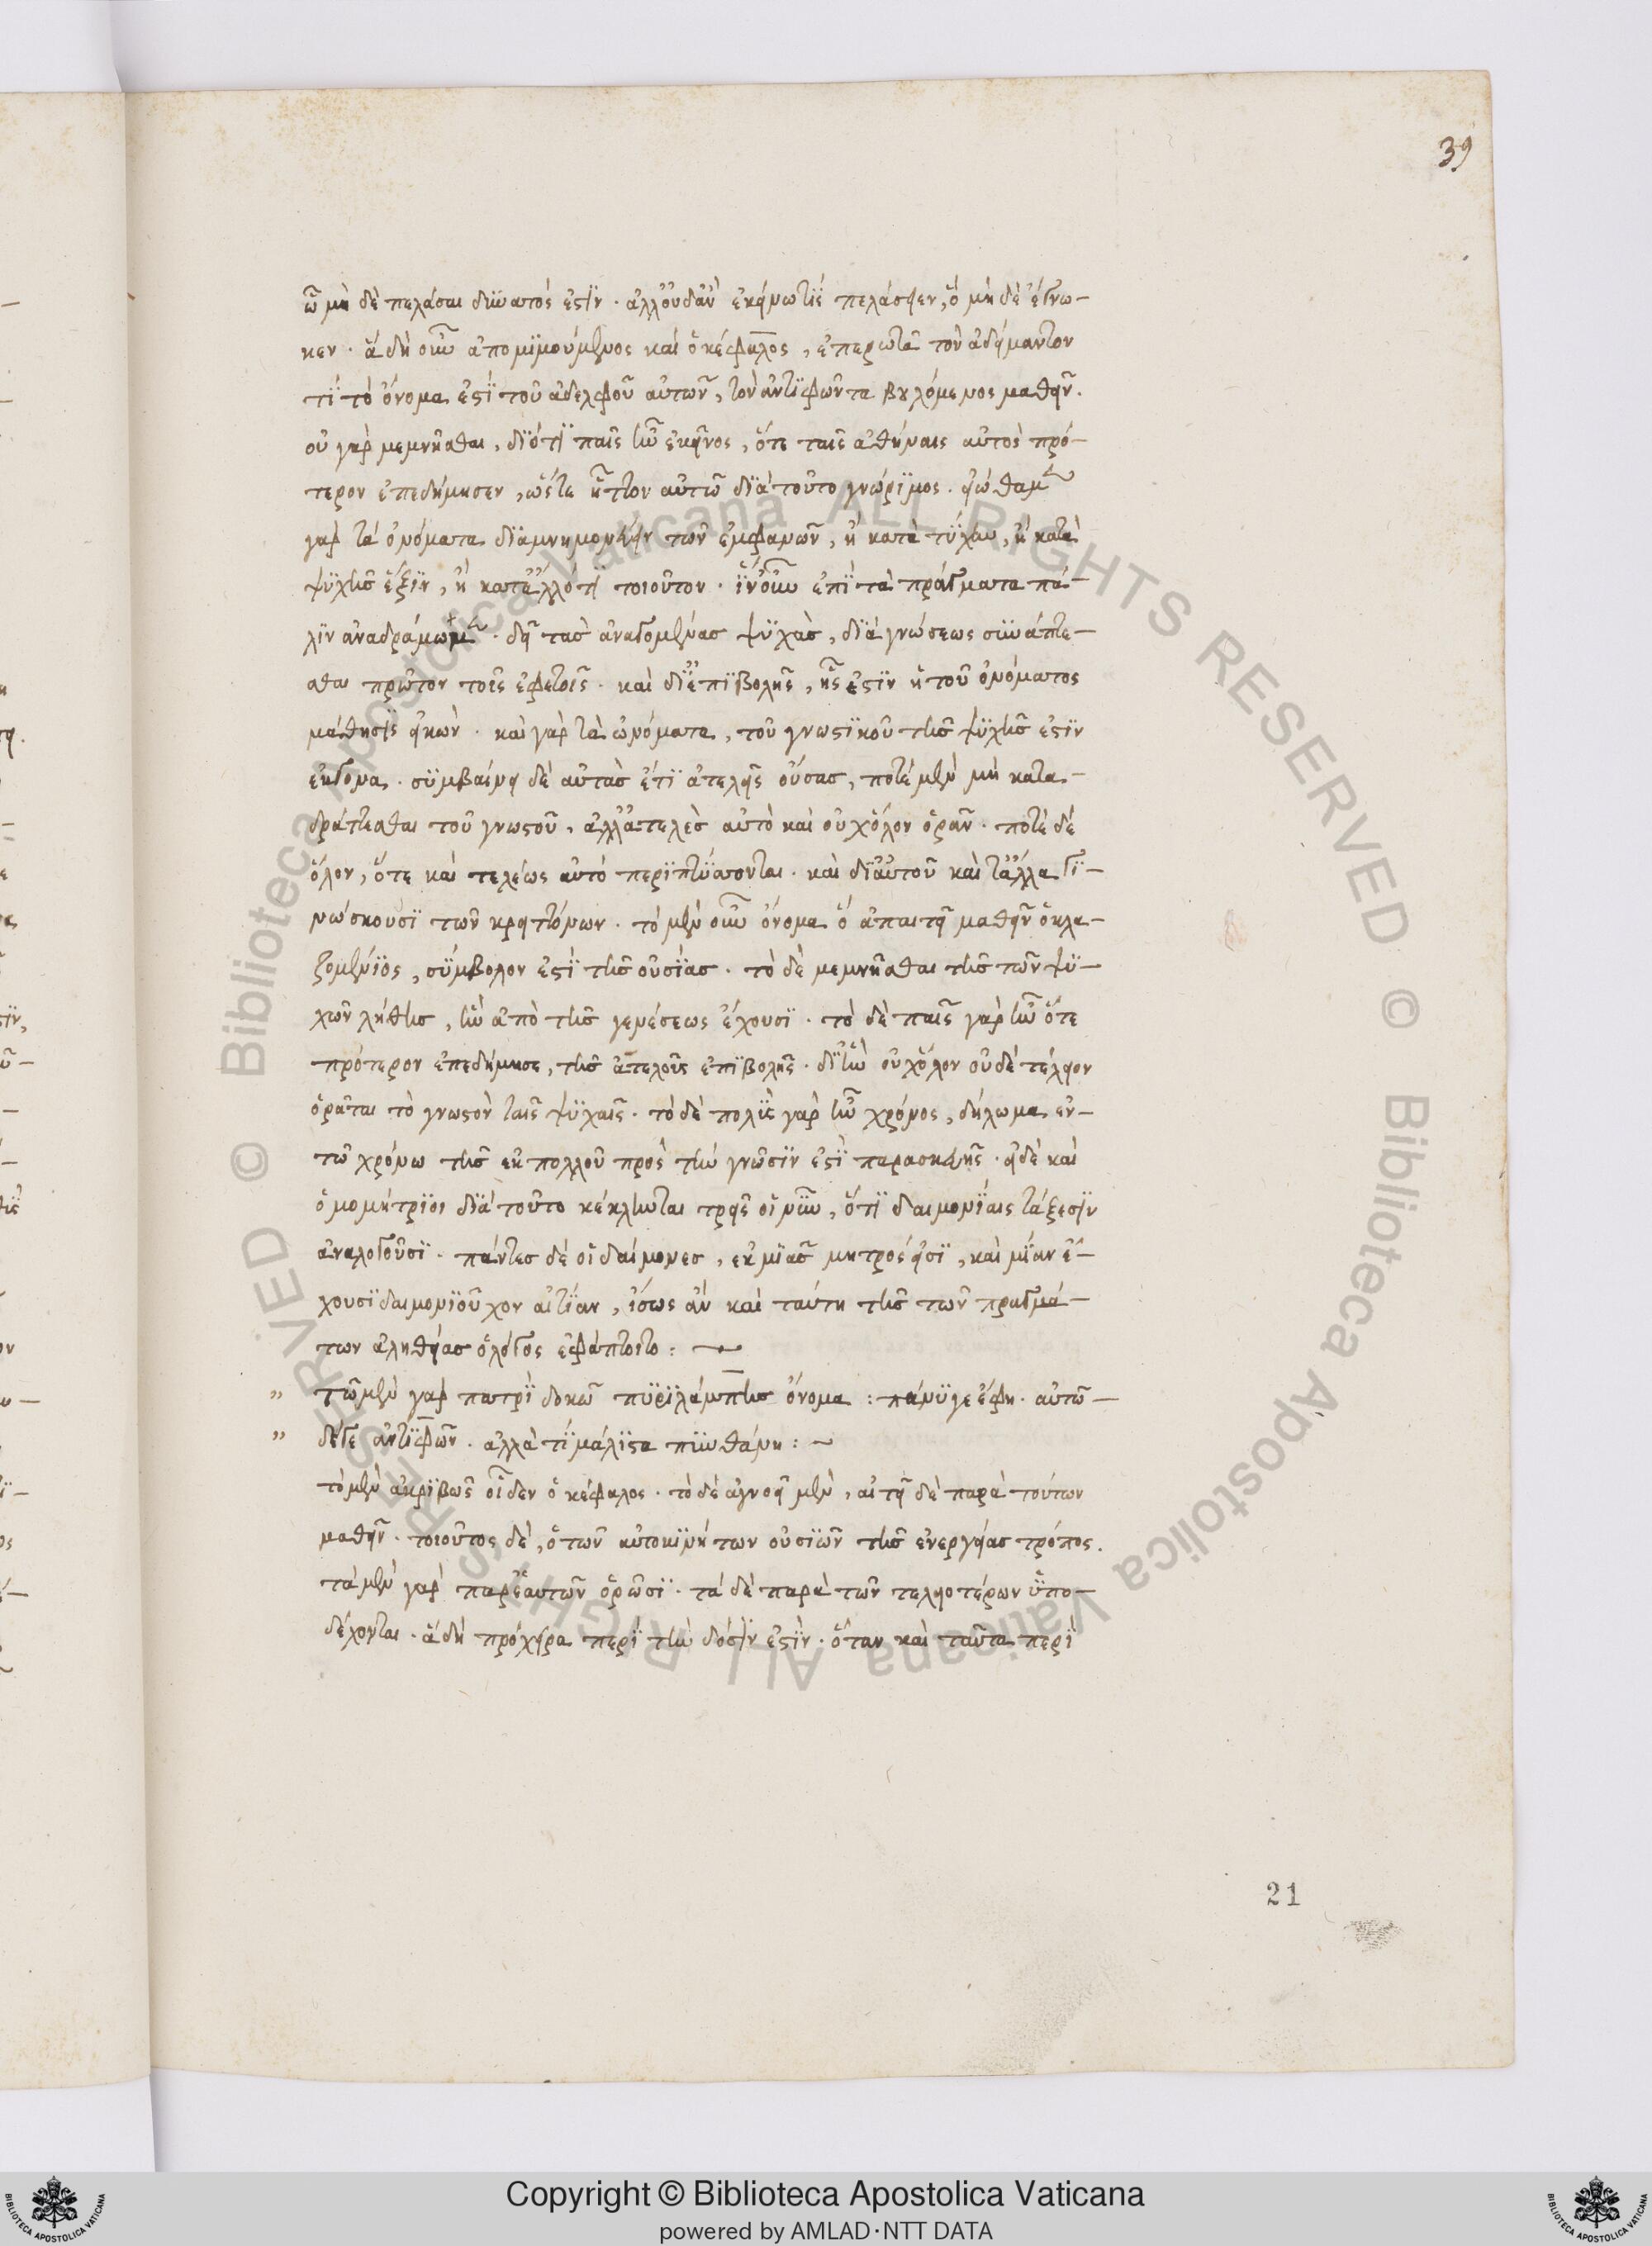 39
ᾧ μὴ δὲ πελάσαι δυνατός ἐστιν. ἀλλ' οὐδ' ἂν ἐκείνω τίς πελάσειεν, ὃ μὴ δὲ ἔγνω-
κεν. ἃ δὴ οὖν ἀπομιμούμενος καὶ ὁ κέφαλος, ἐπερωτᾶ τὸν ἀδείμαντον
τί τὸ ὄνομα ἐστὶ τοῦ ἀδελφοῦ αὐτῶν, τὸν ἀντιφῶντα βουλόμενος μαθεῖν.
οὐ γὰρ μεμνῆσθαι, διότι παῖς ἦν ἐκεῖνος, ὅτε ταῖς ἀθήναις αὐτὸς πρό-
τερον ἐπεδήμησεν, ὥστε ἧττον αὐτῶ διὰ τοῦτο γνώριμος. εἰώθαμεν
γὰρ τὰ ὀνόματα διαμνημονεύειν τῶν ἐμφανῶν, ἢ κατὰ τύχην, ἢ κατὰ
ψυχῆς ἕξιν, ἢ κατ' ἄλλό τι τοιοῦτον. ἵν' οὖν ἐπὶ τὰ πράγματα πά-
λιν ἀναδράμωμεν. δεῖ τὰς ἀναγομένας ψυχὰς, διὰ γνώσεως συνάπτε-
σθαι πρῶτον τοῖς ἐφετοῖς. καὶ δι' ἐπιβολῆς, ἧς ἐστὶν ἡ τοῦ ὀνόματος
μάθησις εἰκών. καὶ γὰρ τὰ ὠνόματα, τοῦ γνωστικοῦ τῆς ψυχῆς ἐστὶν
ἔκγονα. συμβαίνει δὲ αὐτὰς ἔτι ἀτελεῖς οὔσας, ποτὲ μὲν μὴ κατα-
δράττεσθαι τοῦ γνωστοῦ, ἀλλ' ἀτελὲς αὐτὸ καὶ οὐχ ὅλον ὁρᾶν. ποτὲ δὲ
ὅλον, ὅτε καὶ τελέως αὐτὸ περιπτύσσονται. καὶ δι' αὐτοῦ καὶ τἄλλα γι-
νώσκουσι τῶν κρειττόνων. τὸ μὲν οὖν ὄνομα ὃ ἀπαιτεῖ μαθεῖν ὁ κλα-
ζομένιος, σύμβολον ἐστὶ τῆς οὐσίας. τὸ δὲ μεμνῆσθαι τῆς τῶν ψυ-
χῶν λήθης, ἣν ἀπὸ τῆς γενέσεως ἔχουσι. τὸ δὲ παῖς γὰρ ἦν ὅτε
πρότερον ἐπεδήμησε, τῆς ἀτελοῦς ἐπιβολῆς. δι' ἣν οὐχ ὅλον οὐδὲ τέλειον
ὁρᾶται τὸ γνωστὸν ταῖς ψυχαῖς. τὸ δὲ πολὺς γὰρ ἦν χρόνος, δήλωμα ἐν-
τῶ χρόνω τῆς ἐκ πολλοῦ πρὸς τὴν γνῶσιν ἐστὶ παρασκευῆς. εἰ δὲ καὶ
ὁμομήτριοι διὰ τοῦτο κέκληνται τρεῖς οἱ νῦν, ὅτι δαιμονίαις τάξεσιν
ἀναλογοῦσι. πάντες δὲ οἱ δαίμονες, ἐκ μιᾶς μητρός εἰσι, καὶ μίαν ἔ-
χουσι δαιμονιοῦχον αἰτίαν, ἴσως ἂν καὶ ταύτη τῆς τῶν πραγμά-
των ἀληθείας ὁ λόγος ἐφάπτοιτο: ~
" τῶ μὲν γὰρ πατρὶ δοκῶ πυριλάμπης ὄνομα: πάνυ γε ἔφη. αὐτῶ-
" δέ γε ἀντιφῶν. ἀλλὰ τί μάλιστα πυνθάνη: ~
τὸ μὲν ἀκριβῶς οἶδεν ὁ κέφαλος. τὸ δὲ ἀγνοεῖ μὲν, αἰτεῖ δὲ παρὰ τούτων
μαθεῖν. τοιοῦτος δὲ, ὁ τῶν αὐτοκινήτων οὐσιῶν τῆς ἐνεργείας τρόπος.
τὰ μὲν γὰρ παρ' ἑαυτῶν ὁρῶσι. τὰ δὲ παρὰ τῶν τελειοτέρων ὑπο-
δέχονται. ἃ δὴ πρόχειρα περὶ τὴν δόσιν ἐστὶν. ὅταν καὶ ταῦτα περὶ
21
Copyright © Biblioteca Apostolica Vaticana
powered by AMLAD·NTT DATA